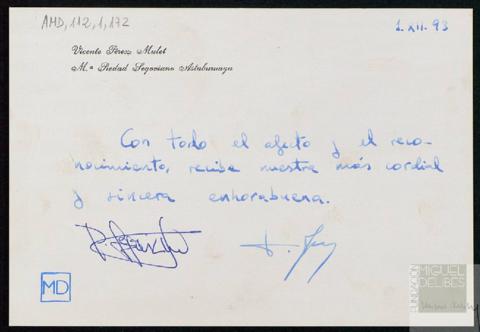 AMD, 112, 1, 172
1. XII. 93
Vicente Pérez Mulet
M.ª Piedad Segoviano Astaburuaga
Con todo el afecto y el reco-
nocimiento, recibe nuestra más cordial
y sincera enhorabuena.
MD
FUNDACIÓN
MIGUEL
DELIBES